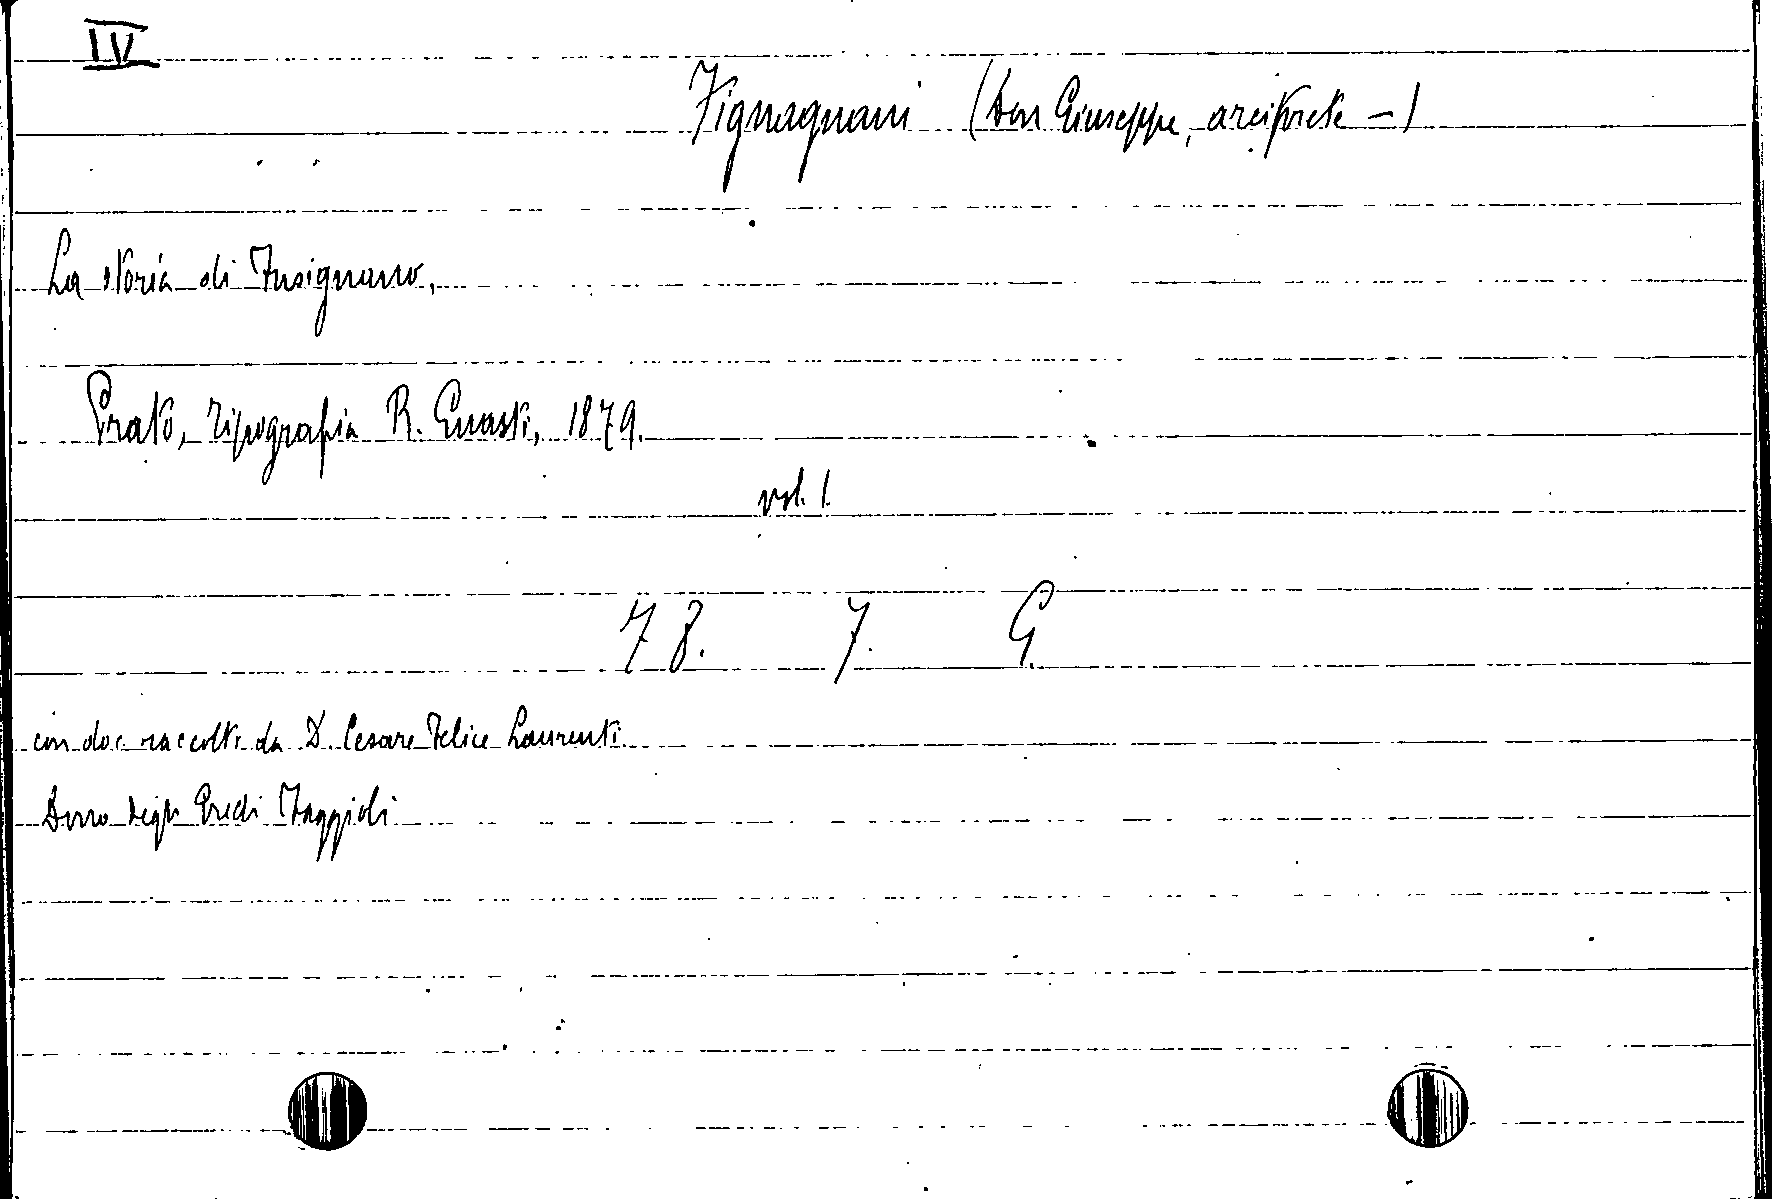 IV
Fignagnani (Don Giuseppe, arciprete -)
La storia di Fusignano,
Prato, tipografia R. Guasti, 1879.
vol. 1.
78. 7. G.
con doc. raccolti da D. Cesare Felice Laurenti
Dono degli Eredi Taggioli